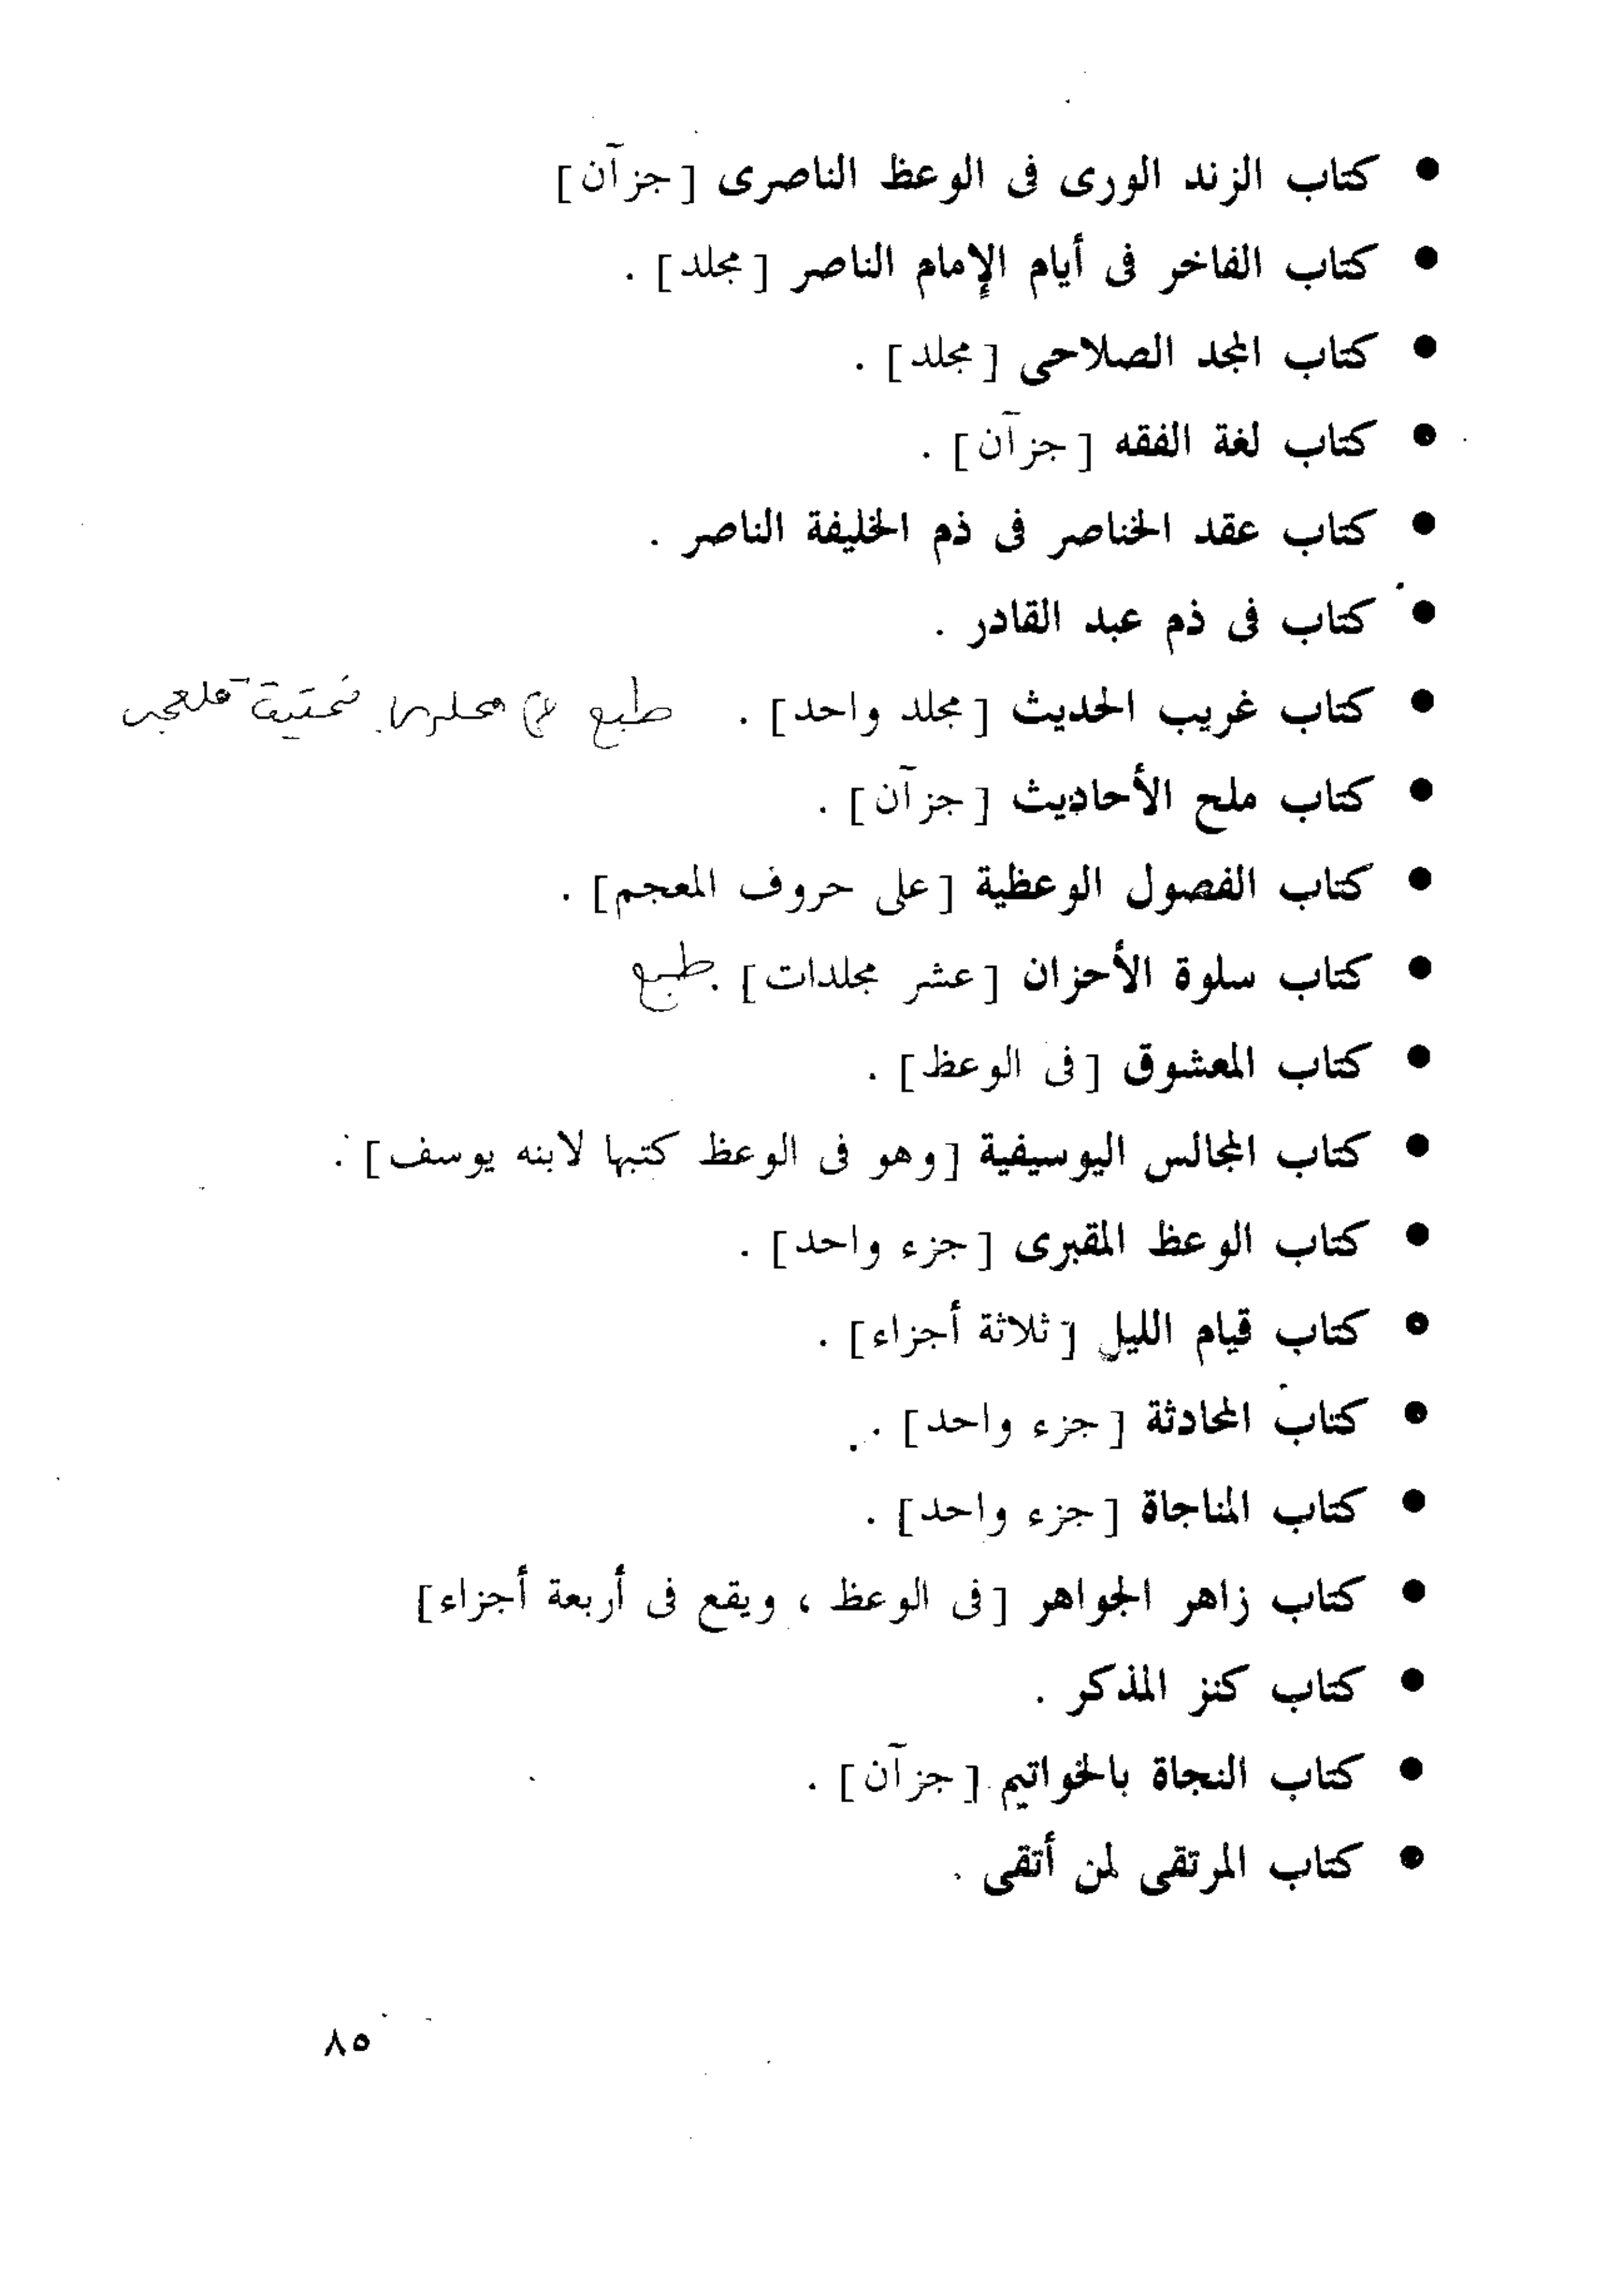 ● كتاب الزند الورى فى الوعظ الناصرى [جزآن]
● كتاب الفاخر فى أيام الإمام الناصر [مجلد] .
● كتاب المجد الصلاحى [مجلد] .
● كتاب لغة الفقه [جزآن] .
● كتاب عقد الخناصر فى ذم الخليفة الناصر .
● كتاب فى ذم عبد القادر .
● كتاب غريب الحديث [مجلد واحد] . طبع فى مجلدين بتحقيق قلعجى
● كتاب ملح الأحاديث [جزآن] .
● كتاب الفصول الوعظية [على حروف المعجم] .
● كتاب سلوة الأحزان [عشر مجلدات] . طبع
● كتاب المعشوق [فى الوعظ] .
● كتاب المجالس اليوسيفية [وهو فى الوعظ كتبها لابنه يوسف] .
● كتاب الوعظ المقبرى [جزء واحد] .
● كتاب قيام الليل [ثلاثة أجزاء] .
● كتاب المحادثة [جزء واحد] .
● كتاب المناجاة [جزء واحد] .
● كتاب زاهر الجواهر [فى الوعظ ، ويقع فى أربعة أجزاء]
● كتاب كنز المذكر .
● كتاب النجاة بالخواتيم [جزآن] .
● كتاب المرتقى لمن أتقى .
٨٥